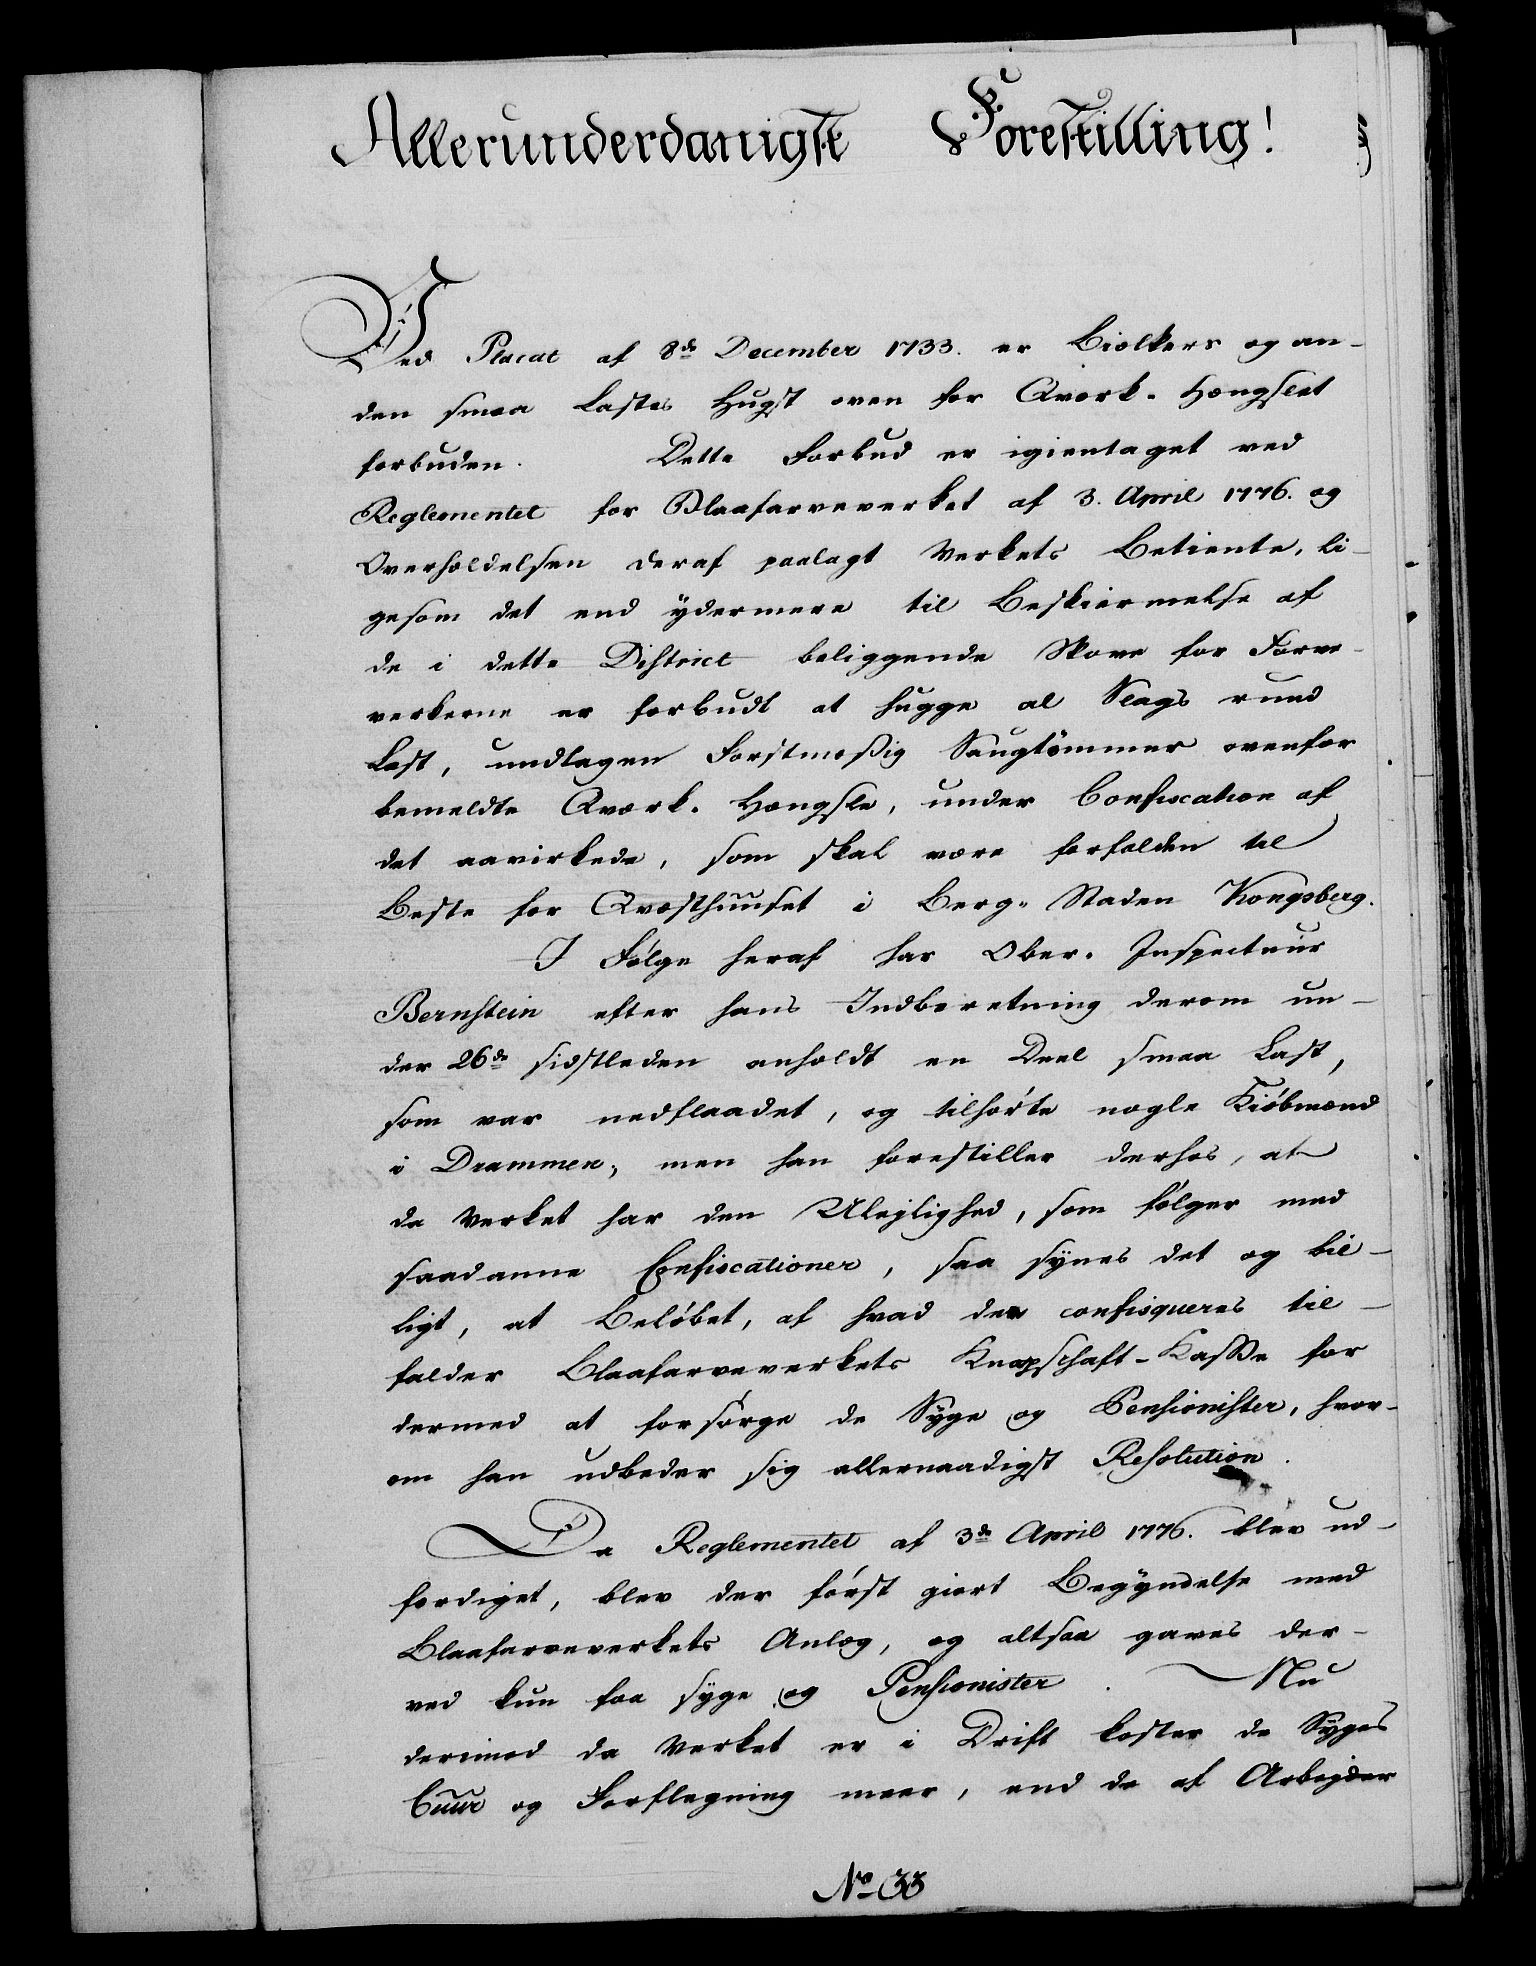 Allerunderdanigste Forestilling!
Ved Placat af 8de December 1733. er Biælkers og an-
den smaa Lastes Hugst oven for Qværk-Hængslet
forbuden. Dette Forbud er igientaget ved
Reglementet for Blaafarveverket af 3. April 1776. og
Overholdelsen deraf paalagt Verkets Betiente, li-
gesom det end ÿdermere til Beskiermelse af
de i dette District beliggende Skove for Farve-
verkerne er forbudt at hugge al Slags rund
Last, undtagen Forstmæßig Saugtømmer ovenfor
bemeldte Qværk-Hængsle, under Confiscation af
det aavirkede, som skal være forfalden til
Beste for Qvæsthuuset i Berg-Staden Kongsberg.
I Følge heraf har Ober-Inspecteur
Bernstein efter hans Indberetning derom un-
der 26de sidstleden anholdt en Deel smaa Last,
som var nedflaadet, og tilhørte nogle Kiøbmænd
i Drammen; men han forestiller derhos, at
da Verket har den Ulejlighed, som følger med
saadanne Confiscationer, saa sÿnes det og bil-
ligt, at Beløbet, af hvad der confisqueres til-
falder Blaafarveverkets Knapschaft-Kasse for
dermed at forsørge de Sÿge og Pensionister, hvor-
om han udbeder sig allernaadigst Resolution.
Da Reglementet af 3de April 1776. blev ud-
færdiget, blev der først giort Begÿndelse med
Blaafarveverkets Anlæg, og altsaa gaves der-
ved kun faa sÿge og Pensionister. Nu
derimod da Verket er i Drift koster de Sÿges
Cuur og Forflegning meer, end de af Arbejder
No 33